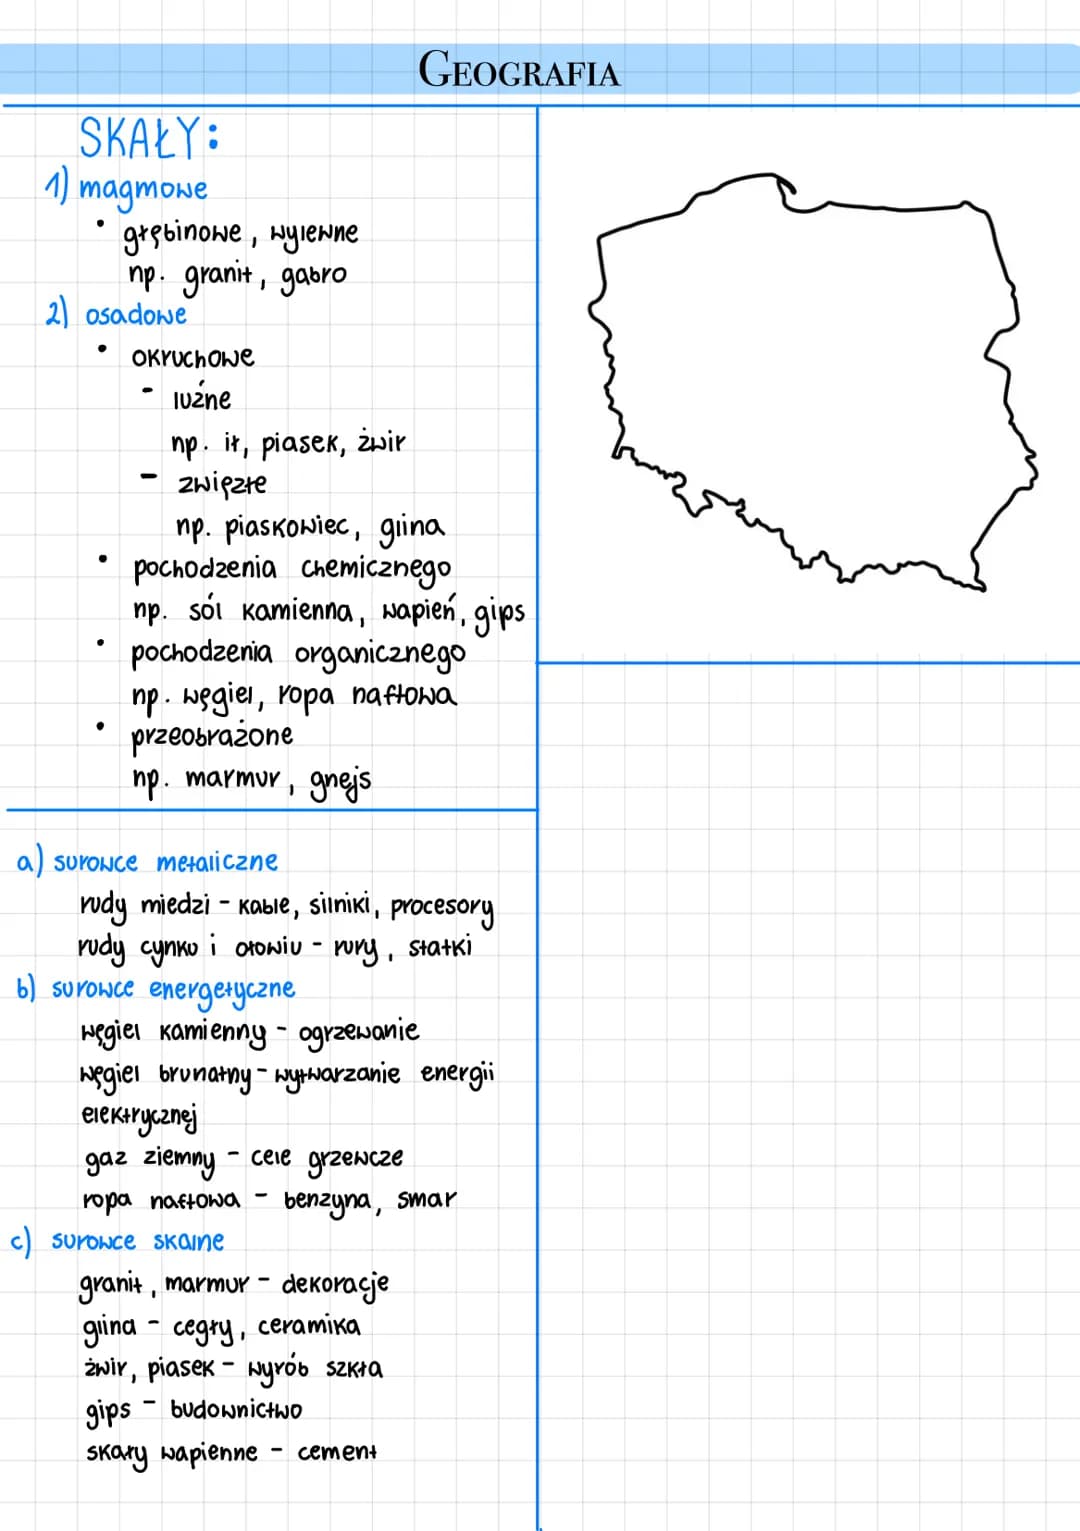 GEOGRAFIA
SKAŁY:
1) magmowe
• głębinowe, wylewne
np. granit, gabro
2) osadowe
• okruchowe
- luźne
np. ił, piasek, żwir
- zwięzłe
np. piaskowiec, glina
• pochodzenia chemicznego
np. sól kamienna, wapień, gips
• pochodzenia organicznego
np. węgiel, ropa naftowa
• przeobrażone
np. marmur, gnejs
a) surowce metaliczne
rudy miedzi - kable, silniki, procesory
rudy cynku i ołowiu - rury, statki
b) surowce energetyczne
węgiel kamienny - ogrzewanie
węgiel brunatny - wytwarzanie energii
elektrycznej
gaz ziemny - cele grzewcze
ropa naftowa - benzyna, smar
c) surowce skalne
granit, marmur - dekoracje
glina - cegły, ceramika
żwir, piasek - wyrób szkła
gips - budownictwo
skały wapienne - cement